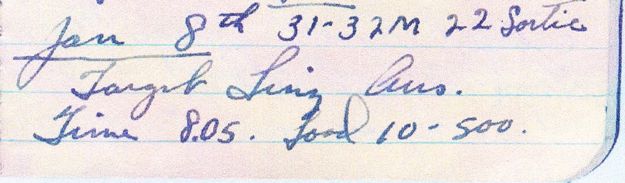 Jan 8th 31-32M 22 Sortie
Target Linz Aus.
Time 8.05. Load 10-500.